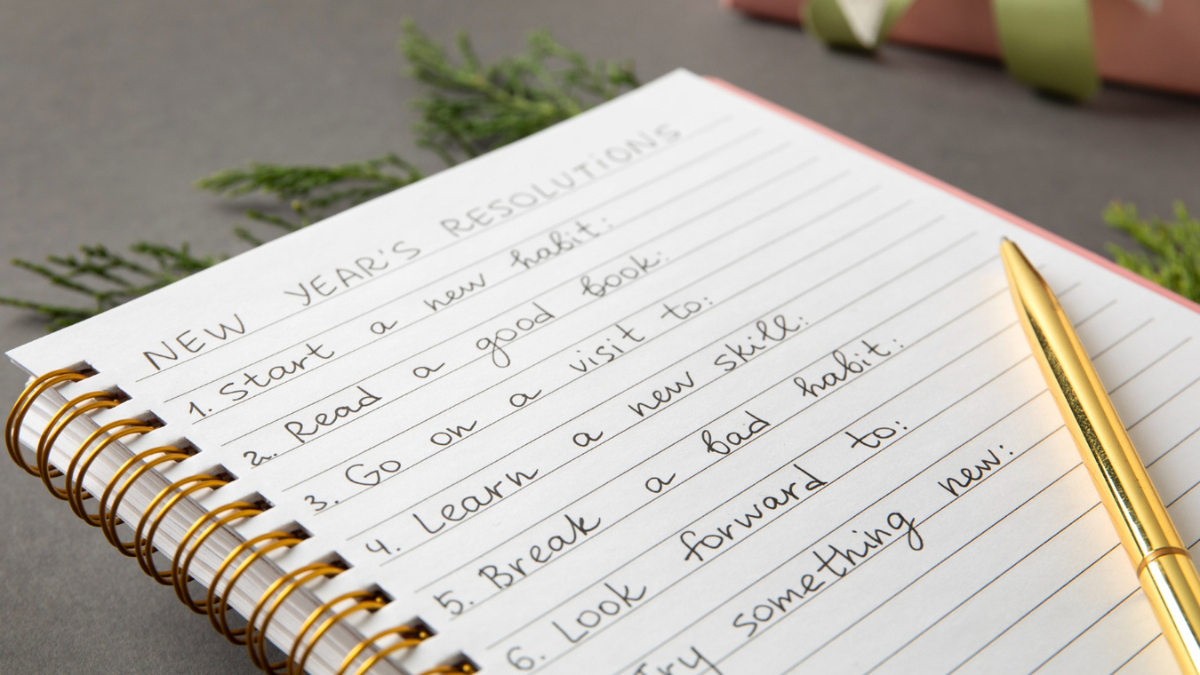 NEW YEAR'S RESOLUTIONS
1. Start a new habit:
2. Read a good book:
3. Go on a visit to:
4. Learn a new skill:
5. Break a bad habit:
6. Look forward to:
Try something new: